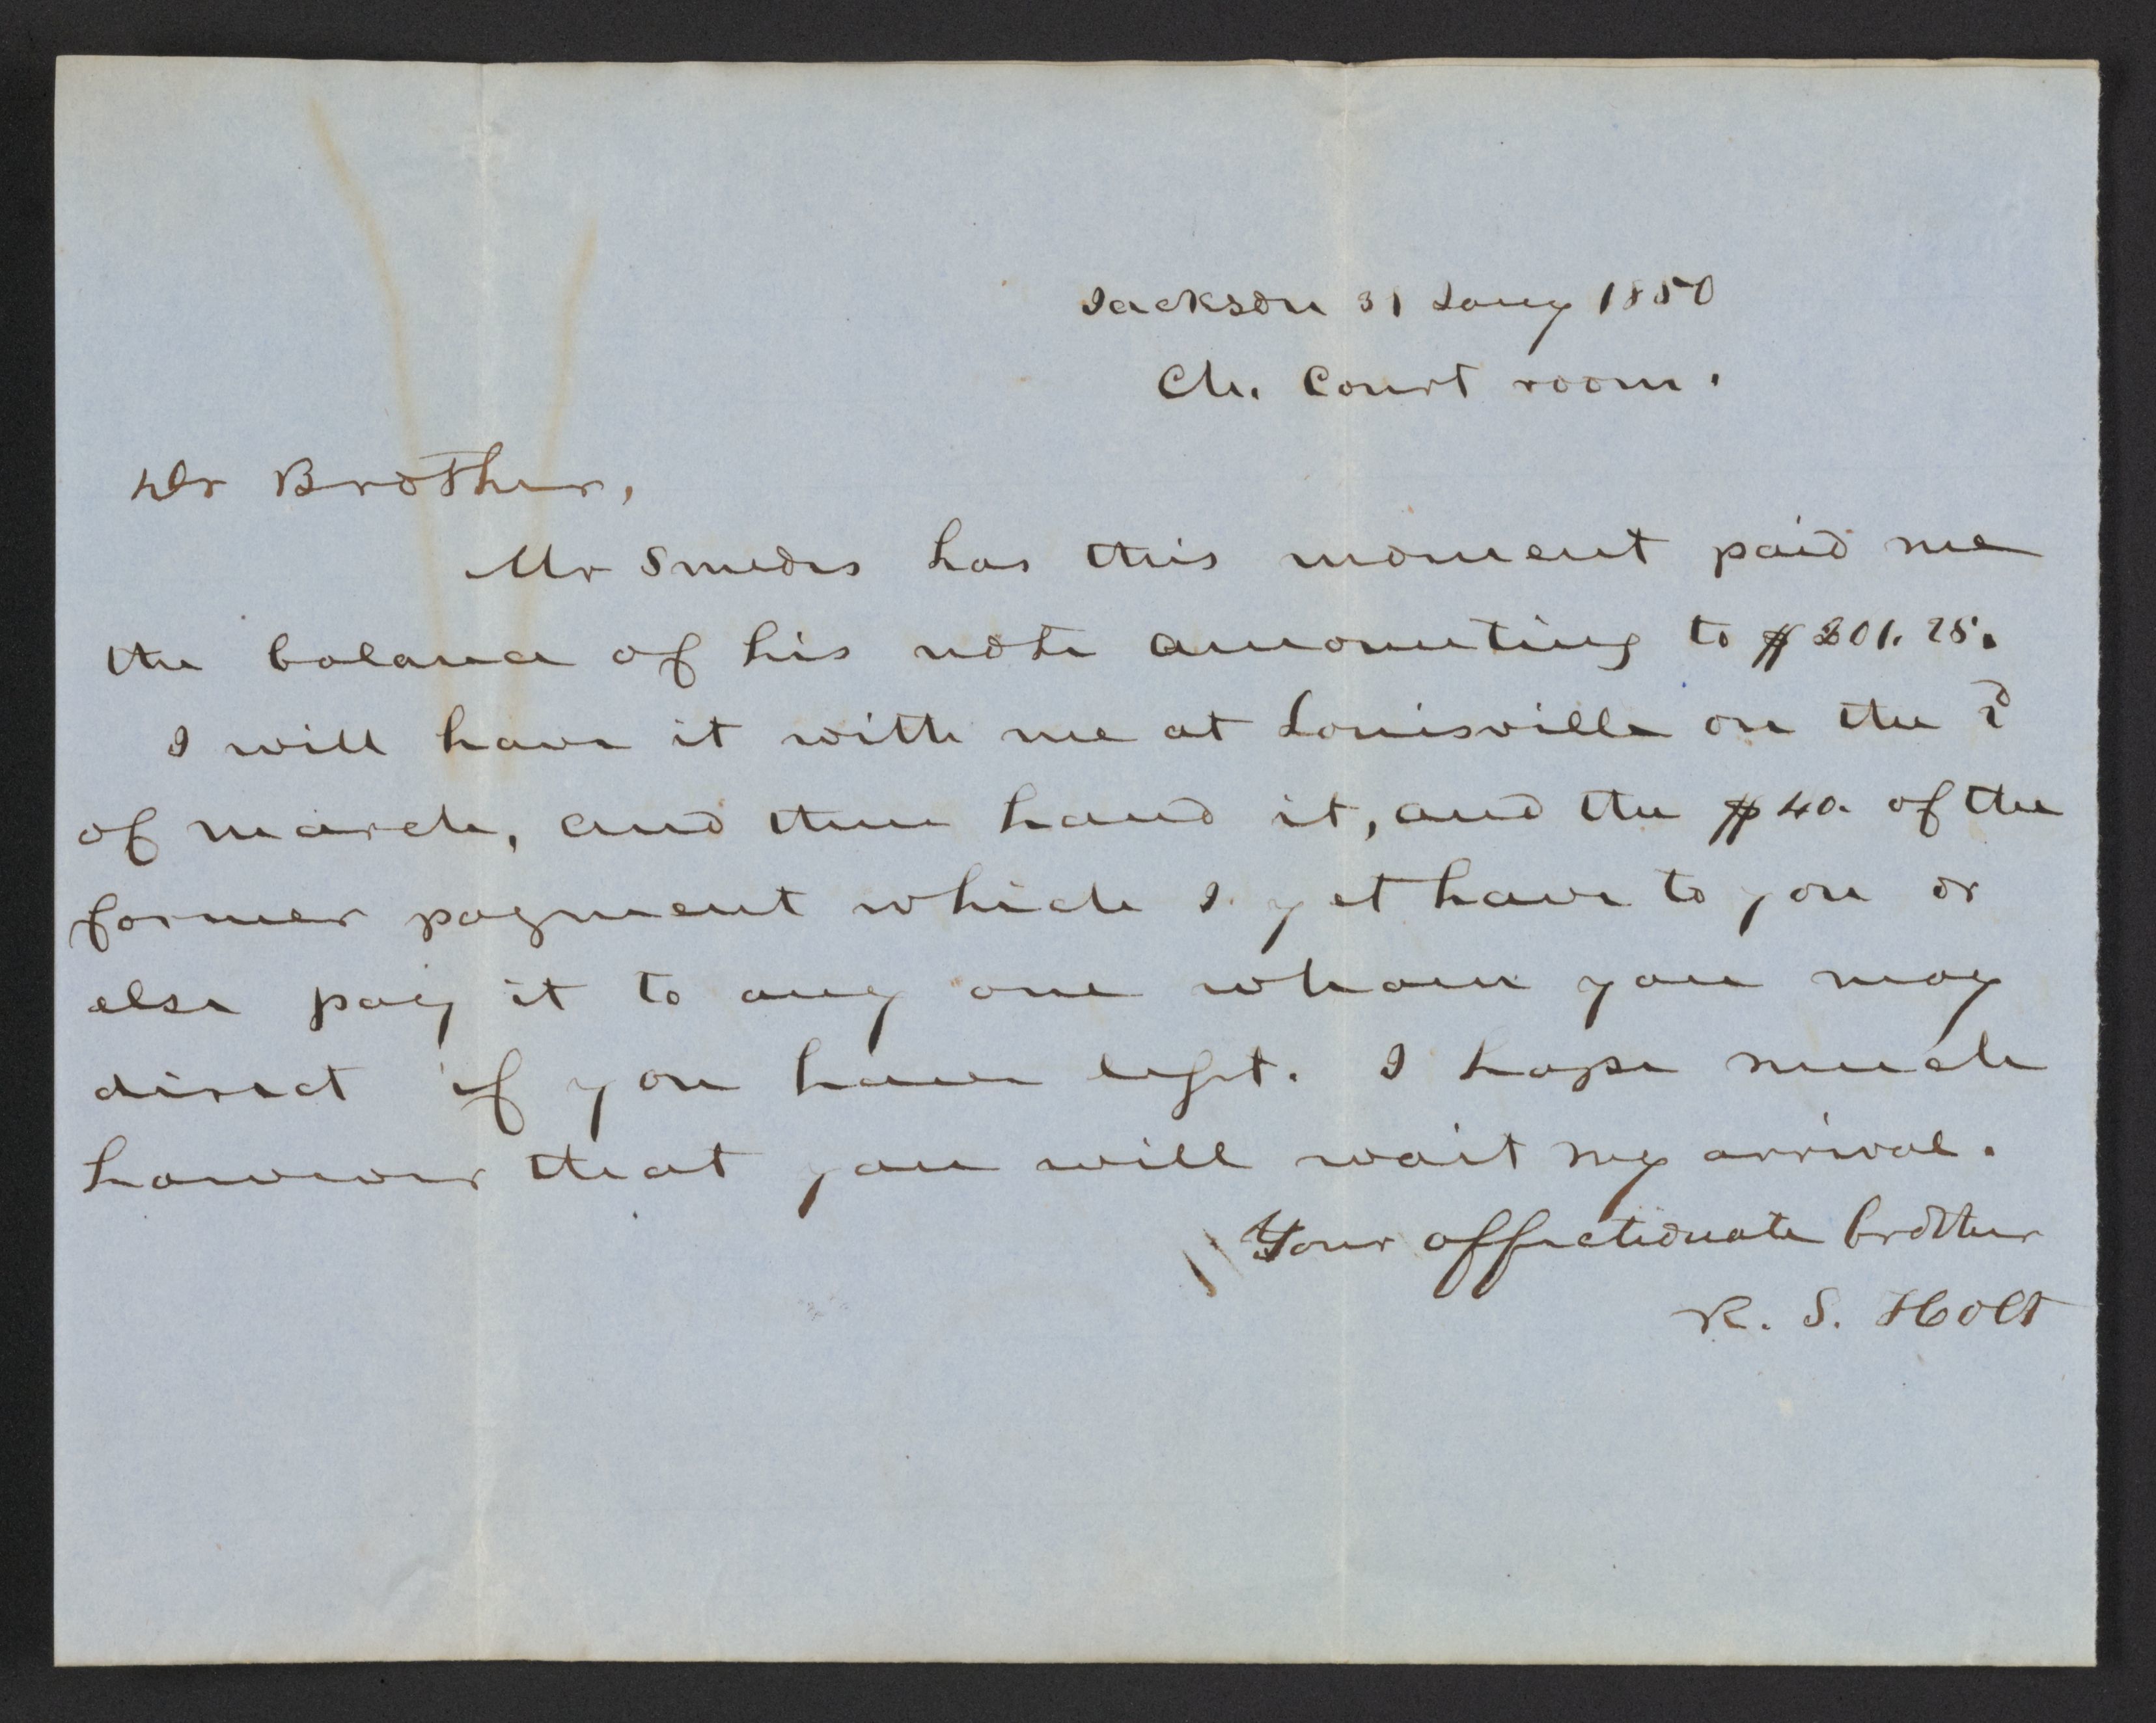 Jackson 31 Jany 1850
Ch. Court room.
Dr Brother,
Mr Smedes has this moment paid me
the balance of his note amounting to $201.25.
I will have it with me at Louisville on the 2d
of march, and then hand it, and the $40. of the
former payment which I yet have to you or
else pay it to any one whom you may
direct if you have left. I hope much
however that you will wait my arrival.
Your affectionate brother
R. S. Holt